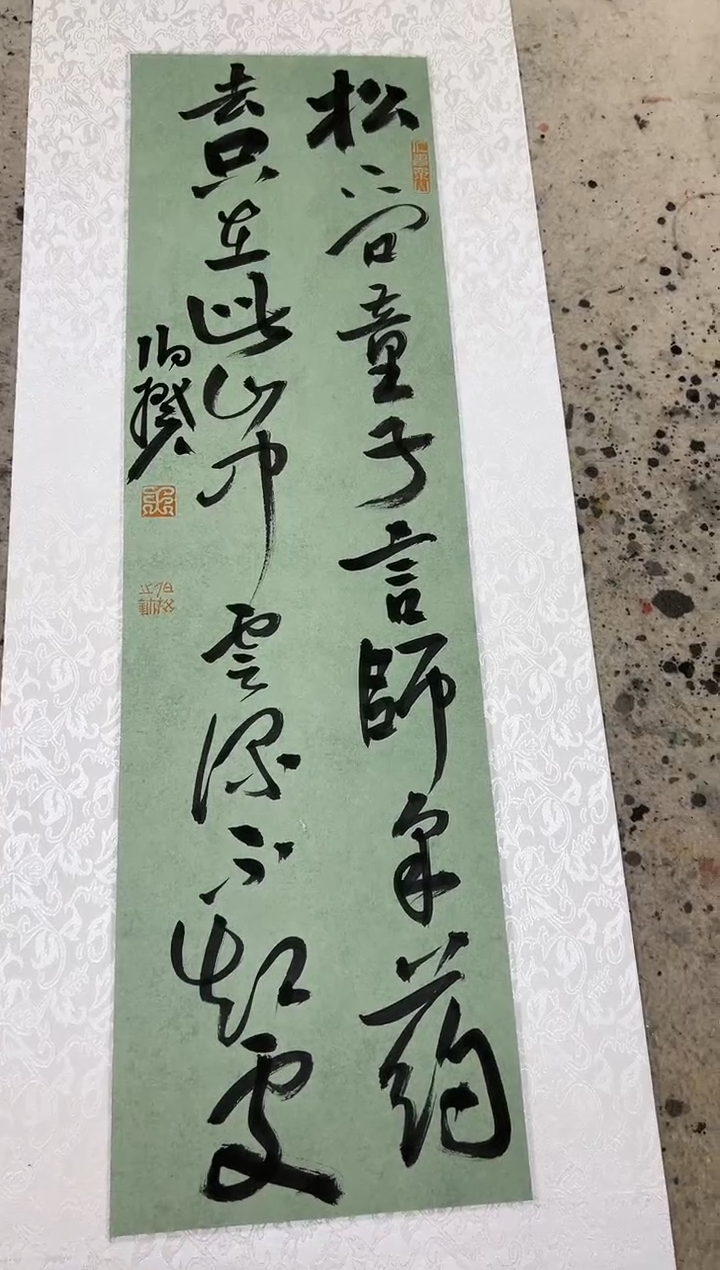 松下問童子言師采药
去只在此山中雲深不知處